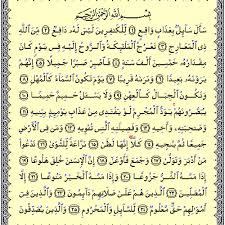 بِسْمِ اللَّهِ الرَّحْمَٰنِ الرَّحِيمِ
سَأَلَ سَائِلٌ بِعَذَابٍ وَاقِعٍ ۝١ لِّلْكَافِرِينَ لَيْسَ لَهُ دَافِعٌ ۝٢ مِّنَ اللَّهِ
ذِي الْمَعَارِجِ ۝٣ تَعْرُجُ الْمَلَائِكَةُ وَالرُّوحُ إِلَيْهِ فِي يَوْمٍ كَانَ
مِقْدَارُهُ خَمْسِينَ أَلْفَ سَنَةٍ ۝٤ فَاصْبِرْ صَبْرًا جَمِيلًا ۝٥ إِنَّهُمْ
يَرَوْنَهُ بَعِيدًا ۝٦ وَنَرَاهُ قَرِيبًا ۝٧ يَوْمَ تَكُونُ السَّمَاءُ كَالْمُهْلِ ۝٨
وَتَكُونُ الْجِبَالُ كَالْعِهْنِ ۝٩ وَلَا يَسْأَلُ حَمِيمٌ حَمِيمًا ۝١٠
يُبَصَّرُونَهُمْ يَوَدُّ الْمُجْرِمُ لَوْ يَفْتَدِي مِنْ عَذَابِ يَوْمِئِذٍ بِبَنِيهِ ۝١١
وَصَاحِبَتِهِ وَأَخِيهِ ۝١٢ وَفَصِيلَتِهِ الَّتِي تُؤْوِيهِ ۝١٣ وَمَن فِي الْأَرْضِ
جَمِيعًا ثُمَّ يُنجِيهِ ۝١٤ كَلَّا إِنَّهَا لَظَىٰ ۝١٥ نَزَّاعَةً لِّلشَّوَىٰ ۝١٦ تَدْعُو
مَنْ أَدْبَرَ وَتَوَلَّىٰ ۝١٧ وَجَمَعَ فَأَوْعَىٰ ۝١٨ إِنَّ الْإِنسَانَ خُلِقَ هَلُوعًا ۝١٩
إِذَا مَسَّهُ الشَّرُّ جَزُوعًا ۝٢٠ وَإِذَا مَسَّهُ الْخَيْرُ مَنُوعًا ۝٢١ إِلَّا
الْمُصَلِّينَ ۝٢٢ الَّذِينَ هُمْ عَلَىٰ صَلَاتِهِمْ دَائِمُونَ ۝٢٣ وَالَّذِينَ فِي
أَمْوَالِهِمْ حَقٌّ مَّعْلُومٌ ۝٢٤ لِّلسَّائِلِ وَالْمَحْرُومِ ۝٢٥ وَالَّذِينَ يُصَدِّقُونَ